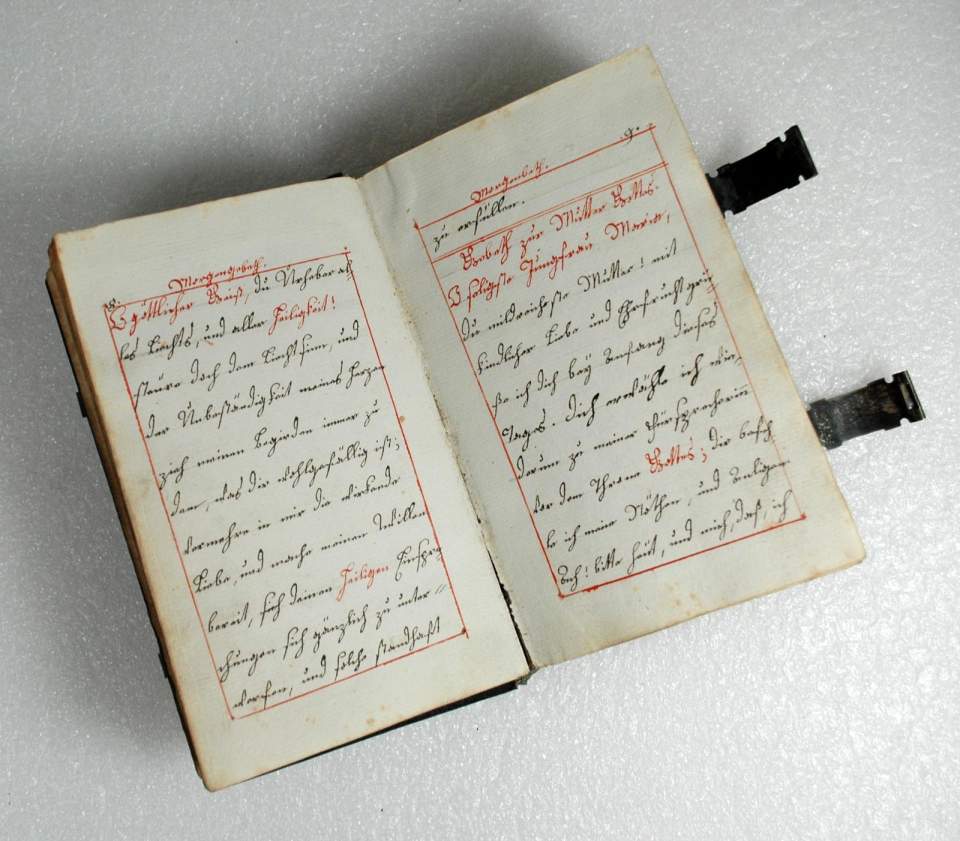 8.
Morgengebeth.
O göttlicher Geist, du Urheber al-
les Liechts, und aller Heiligkeit!
steure doch dem Liechtsinn, und
der Unbeständigkeit meines Herzen
zieh meinen begirden immer zu
dem, was dir wohlgefällig ist;
vermehre in mir die wirkende
Liebe, und mache meinen Willen
bereit, sich deinen Heiligen Einspre-
chungen sich gänzlich zu unter=
werfen, und solche standhaft
Morgenbeth.
9.
zu erfüllen.
Gebeth zur Mutter Gottes.
O seligste Jungfrau Maria,
du mildreicheste Mutter! mit
kindlicher Liebe und Ehrfurcht grü-
ße ich dich bey Anfang dieses
Tages. dich erwähle ich wie-
derum zu meiner Fürsprecherin
vor dem Throne Gottes; dir befeh-
le ich meine Nöthen, und Anligen
Ach! bitte heüt, und mich, daß, ich